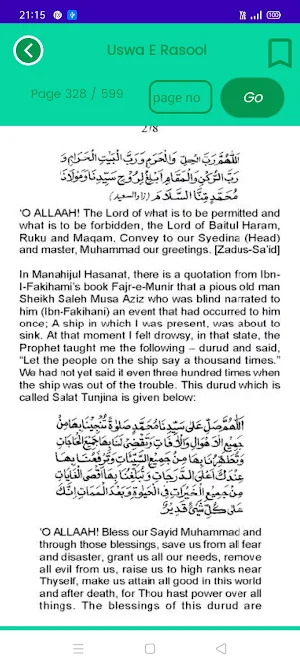 21:15
Uswa E Rasool
Page 328 / 599
page no
Go
278
اَللّٰهُمَّ رَبَّ الْحِلِّ وَالْحَرَمِ وَرَبَّ الْبَيْتِ الْحَرَامِ وَ
رَبَّ الرُّكْنِ وَالْمَقَامِ اَبْلِغْ لِرُوْحِ سَيِّدِنَا وَمَوْلَانَا
مُحَمَّدٍ مِّنَّا السَّلَامَ (زاد السعيد)
'O ALLAAH! The Lord of what is to be permitted and
what is to be forbidden, the Lord of Baitul Haram,
Ruku and Maqam, Convey to our Syedina (Head)
and master, Muhammad our greetings. [Zadus-Sa'id]
In Manahijul Hasanat, there is a quotation from Ibn-
I-Fakihami's book Fajr-e-Munir that a pious old man
Sheikh Saleh Musa Aziz who was blind narrated to
him (Ibn-Fakihani) an event that had occurred to him
once; A ship in which I was present, was about to
sink. At that moment I felt drowsy, in that state, the
Prophet taught me the following – durud and said,
"Let the people on the ship say a thousand times."
We had not yet said it even three hundred times when
the ship was out of the trouble. This durud which is
called Salat Tunjina is given below:
اَللّٰهُمَّ صَلِّ عَلٰى سَيِّدِنَا مُحَمَّدٍ صَلٰوةً تُنَجِّيْنَا بِهَا مِنْ
جَمِيْعِ الْاَهْوَالِ وَالْاٰفَاتِ وَتَقْضِىْ لَنَا بِهَا جَمِيْعَ الْحَاجَاتِ
وَتُطَهِّرُنَا بِهَا مِنْ جَمِيْعِ السَّيِّئَاتِ وَتَرْفَعُنَا بِهَا
عِنْدَكَ اَعْلَى الدَّرَجَاتِ وَتُبَلِّغُنَا بِهَا اَقْصَى الْغَايَاتِ
مِنْ جَمِيْعِ الْخَيْرَاتِ فِى الْحَيٰوةِ وَبَعْدَ الْمَمَاتِ اِنَّكَ
عَلٰى كُلِّ شَىْءٍ قَدِيْرٌ
'O ALLAAH! Bless our Sayid Muhammad and
through those blessings, save us from all fear
and disaster, grant us all our needs, remove
all evil from us, raise us to high ranks near
Thyself, make us attain all good in this world
and after death, for Thou hast power over all
things. The blessings of this durud are